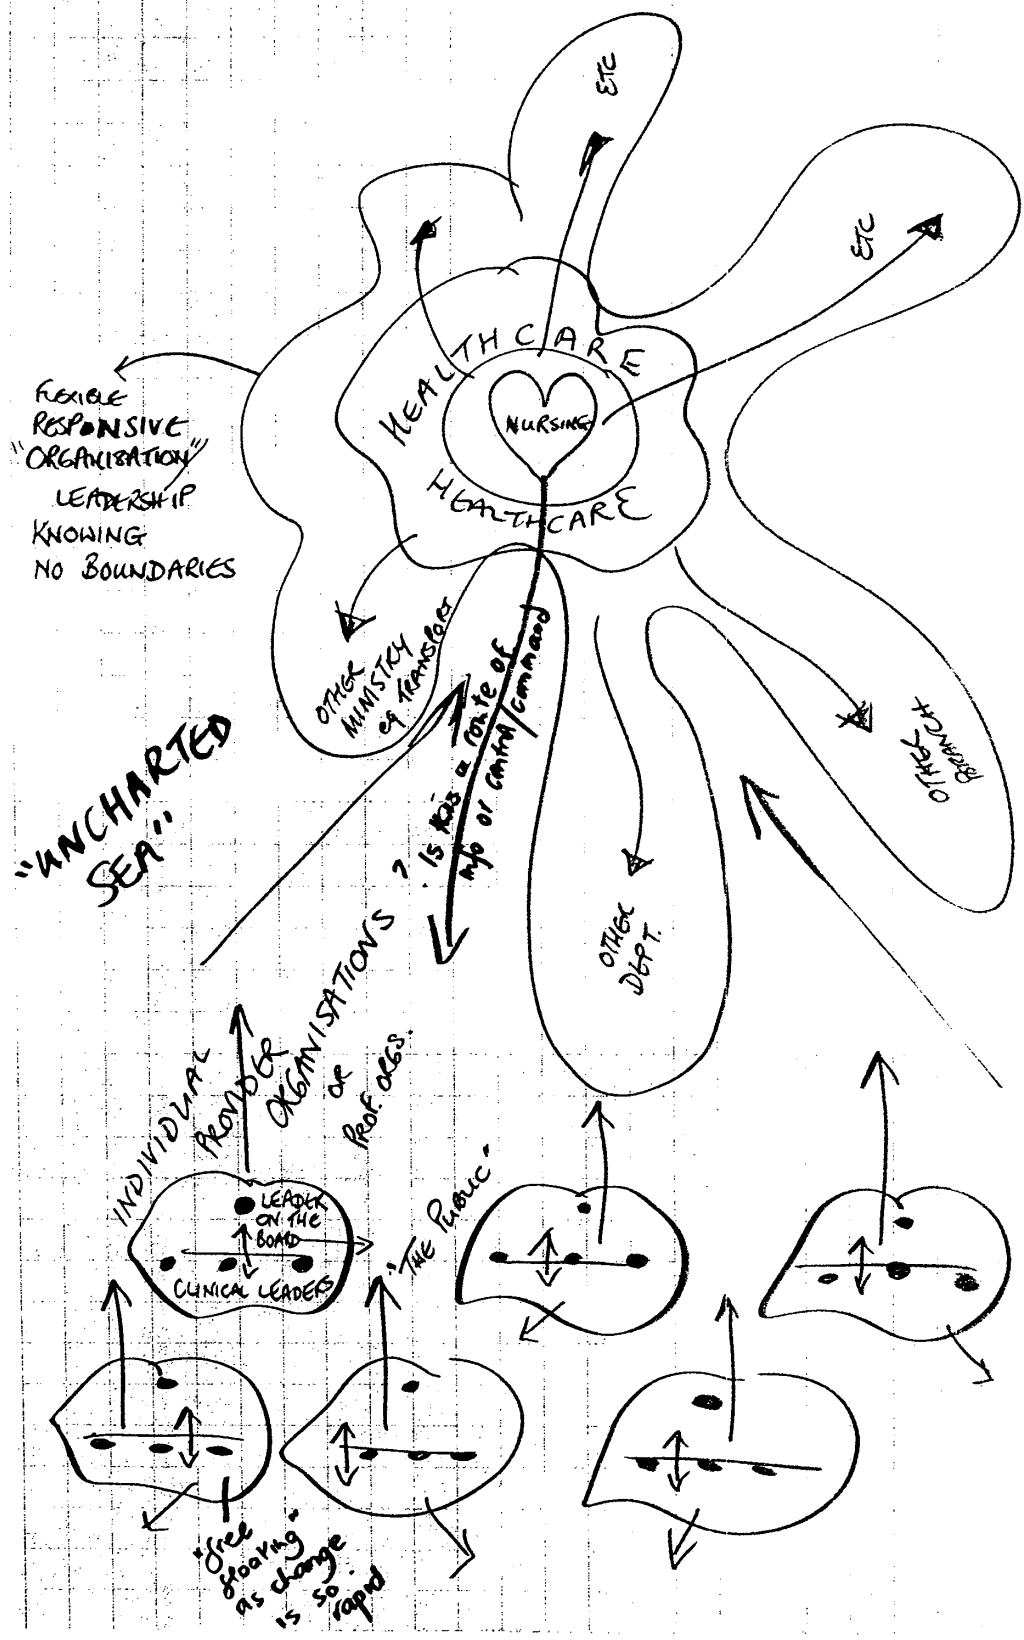 ETC
ETC
HEALTHCARE
NURSING
HEALTHCARE
FLEXIBLE
RESPONSIVE
"ORGANISATION"
LEADERSHIP
KNOWING
NO BOUNDARIES
OTHER
MINISTRY
eg TRANSPORT
? Is this a route of
info or control/command
OTHER
BRANCH
"UNCHARTED
SEA"
OTHER
DEPT.
INDIVIDUAL
PROVIDER
ORGANISATIONS
OR
PROF. ORGS.
"THE PUBLIC"
LEADER
ON THE
BOARD
CLINICAL LEADERS
"free
floating"
as change
is so
rapid